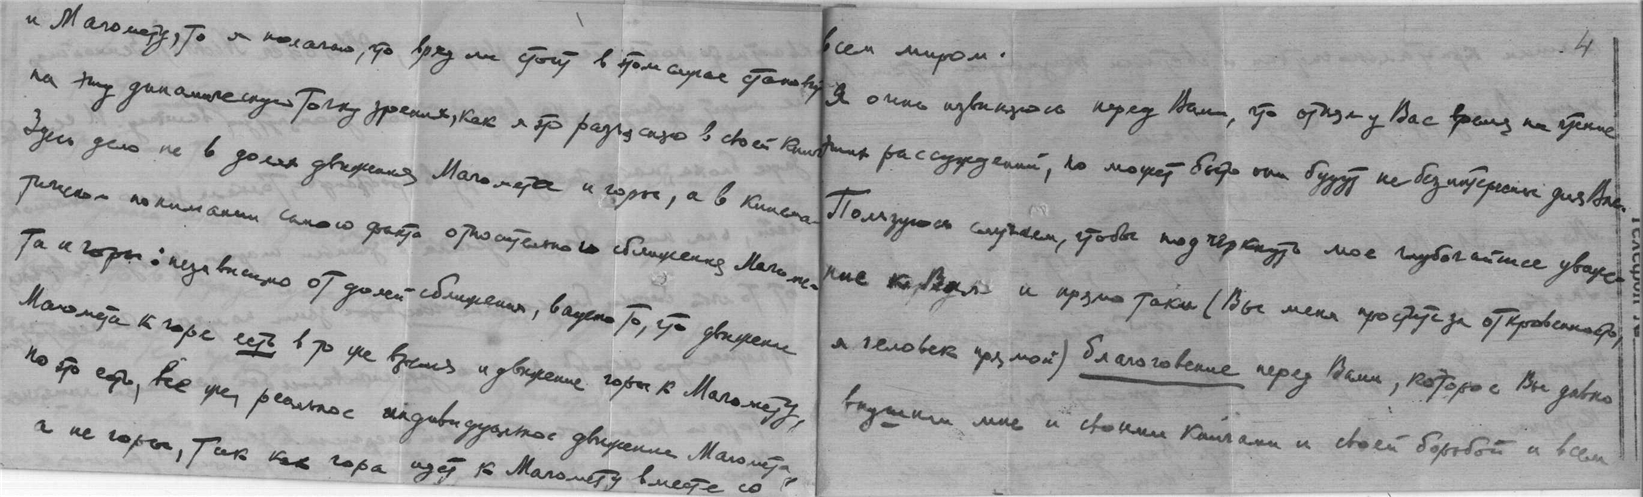 и Магомету, то я полагаю, что вряд ли стоит в этом случае становиться
на эту динамическую точку зрения, как я это разъясняю в своей книге
Здесь дело не в долях движения Магомета и горы, а в кинема-
тическом понимании самого факта относительного сближения Магоме-
та и горы: независимо от долей сближения, важно то, что движение
Магомета к горе есть в то же время и движение горы к Магомету,
но это есть, всё же, реальное индивидуальное движение Магомета
а не горы, так как гора идет к Магомету вместе со
4
всем миром.
Я очень извиняюсь перед Вами, что отнял у Вас время на чтение
этих рассуждений, но может быть они будут не безынтересны для Вас.
Пользуюсь случаем, чтобы подчеркнуть мое глубочайшее уваже-
ние к Вам и прямо таки (Вы меня простите за откровенность,
я человек прямой) благоговение перед Вами, которое Вы давно
внушили мне и своими книгами и своей борьбой и всем